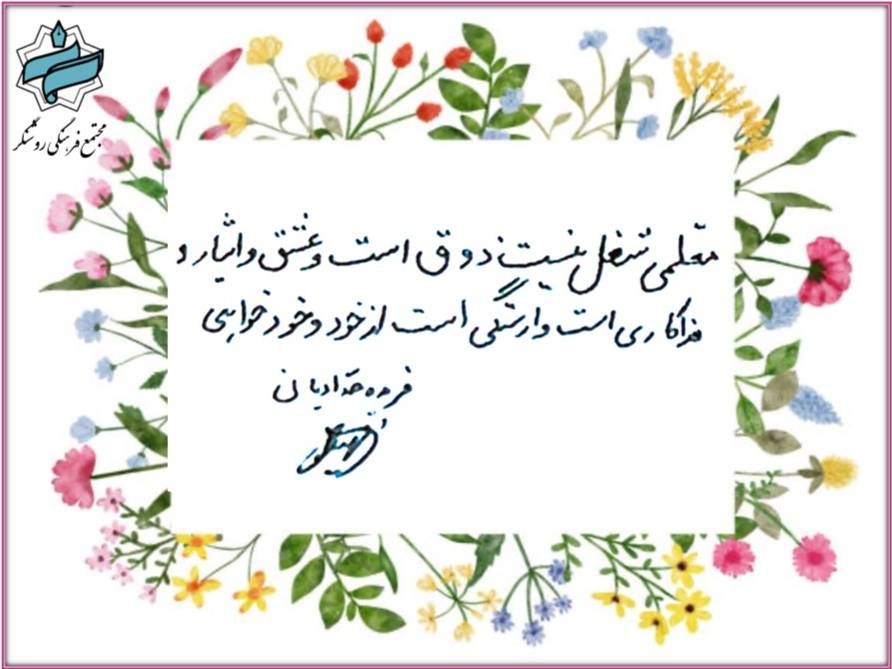 مجتمع فرهنگی روشنگر
معلمی شغل نیست ذوق است و عشق و ایثار و
فداکاری است وارستگی است از خود و خودخواهی
فریده حدادیان